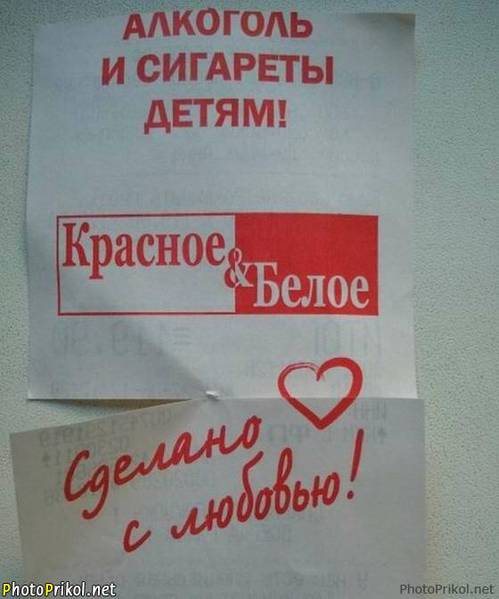 АЛКОГОЛЬ
И СИГАРЕТЫ
ДЕТЯМ!
Красное
&
Белое
Сделано
с любовью!
PhotoPrikol.net
PhotoPrikol.net